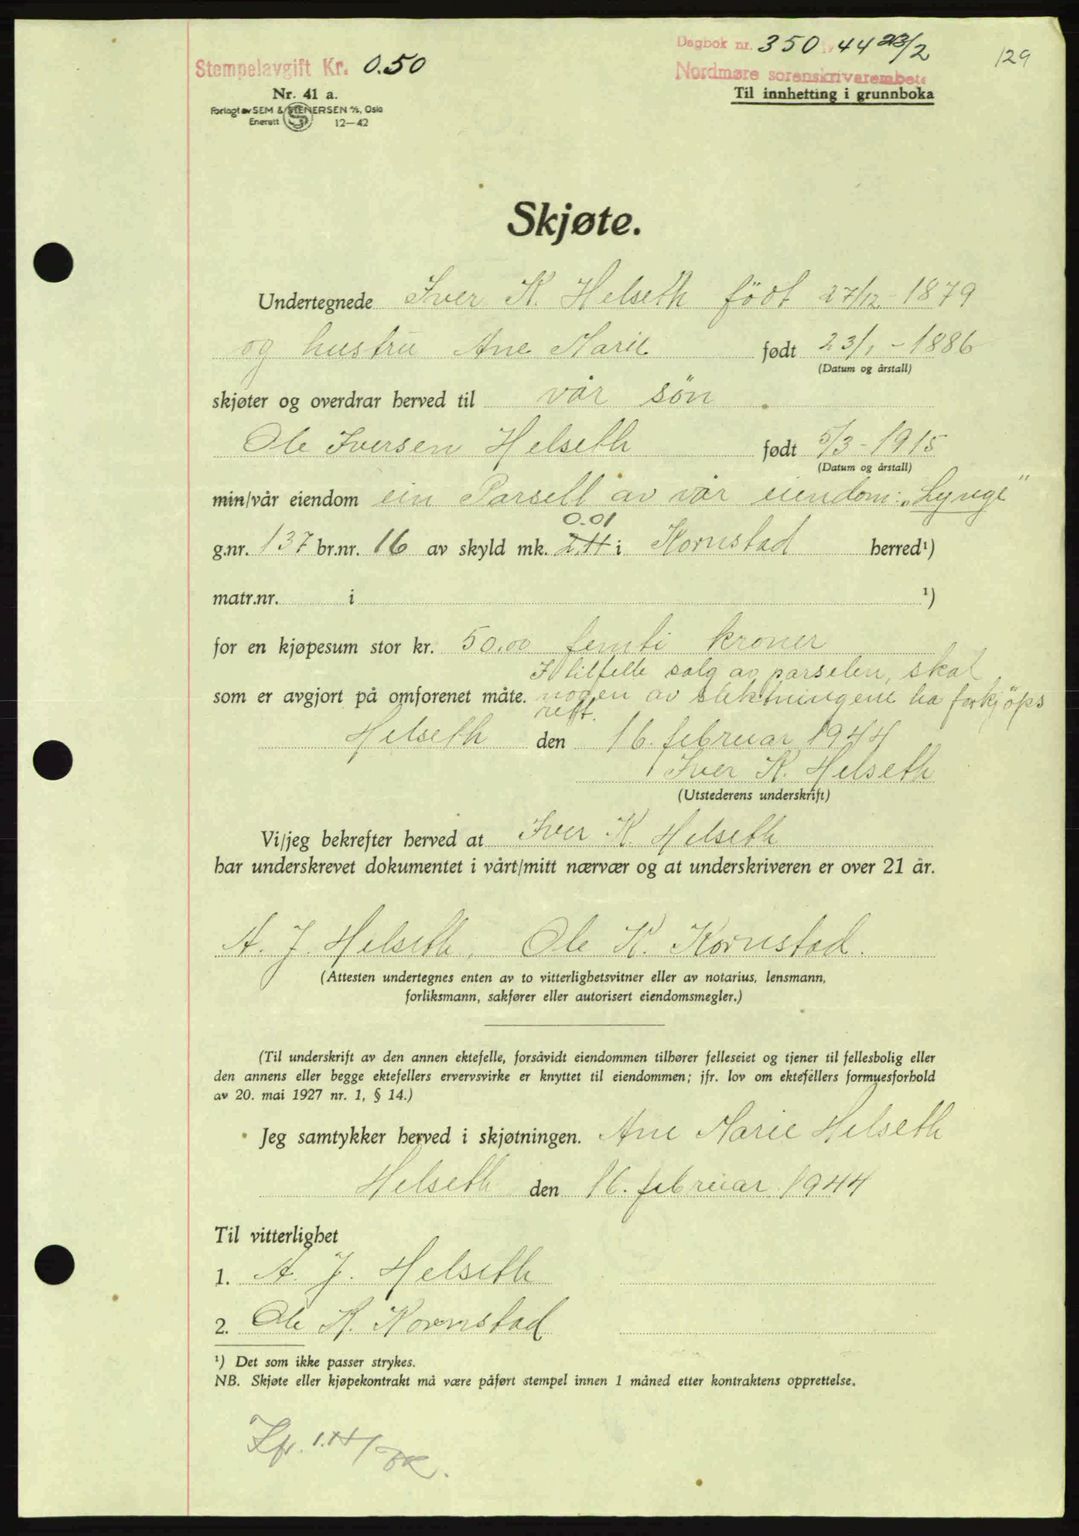 Stempelavgift Kr. 0.50
Dagbok nr. 350 44 23/2
129
Nordmøre sorenskriverembete
Nr. 41 a.
Til innhetting i grunnboka
Forlagt av SEM & STENERSEN A/S, Oslo
Enerett 12-42
Skjøte.
Undertegnede Iver K. Helseth født 27/12 - 1879
og hustru Ane Marie født 23/1 - 1886
(Datum og årstall)
skjøter og overdrar herved til vår søn
Ole Iversen Helseth født 5/3 - 1915
(Datum og årstall)
min/vår eiendom ein Parsell av vår eiendom: „Lynge"
0.01
g.nr. 137 br.nr. 16 av skyld mk. 2.11 i Kornstad herred¹)
matr.nr. i ¹)
for en kjøpesum stor kr. 50.00 femti kroner
I tilfelle salg av parselen, skal
som er avgjort på omforenet måte. nogen av slektningene ha forkjøps
rett.
Helseth den 16. februar 1944
Iver K. Helseth
(Utstederens underskrift)
Vi/jeg bekrefter herved at Iver K. Helseth
har underskrevet dokumentet i vårt/mitt nærvær og at underskriveren er over 21 år.
A. J. Helseth, Ole K. Kornstad.
(Attesten undertegnes enten av to vitterlighetsvitner eller av notarius, lensmann,
forliksmann, sakfører eller autorisert eiendomsmegler.)
(Til underskrift av den annen ektefelle, forsåvidt eiendommen tilhører felleseiet og tjener til fellesbolig eller
den annens eller begge ektefellers ervervsvirke er knyttet til eiendommen; jfr. lov om ektefellers formuesforhold
av 20. mai 1927 nr. 1, § 14.)
Jeg samtykker herved i skjøtningen. Ane Marie Helseth
Helseth den 16. februar 1944
Til vitterlighet
1. A. J. Helseth
2. Ole K. Kornstad
¹) Det som ikke passer strykes.
NB. Skjøte eller kjøpekontrakt må være påført stempel innen 1 måned etter kontraktens opprettelse.